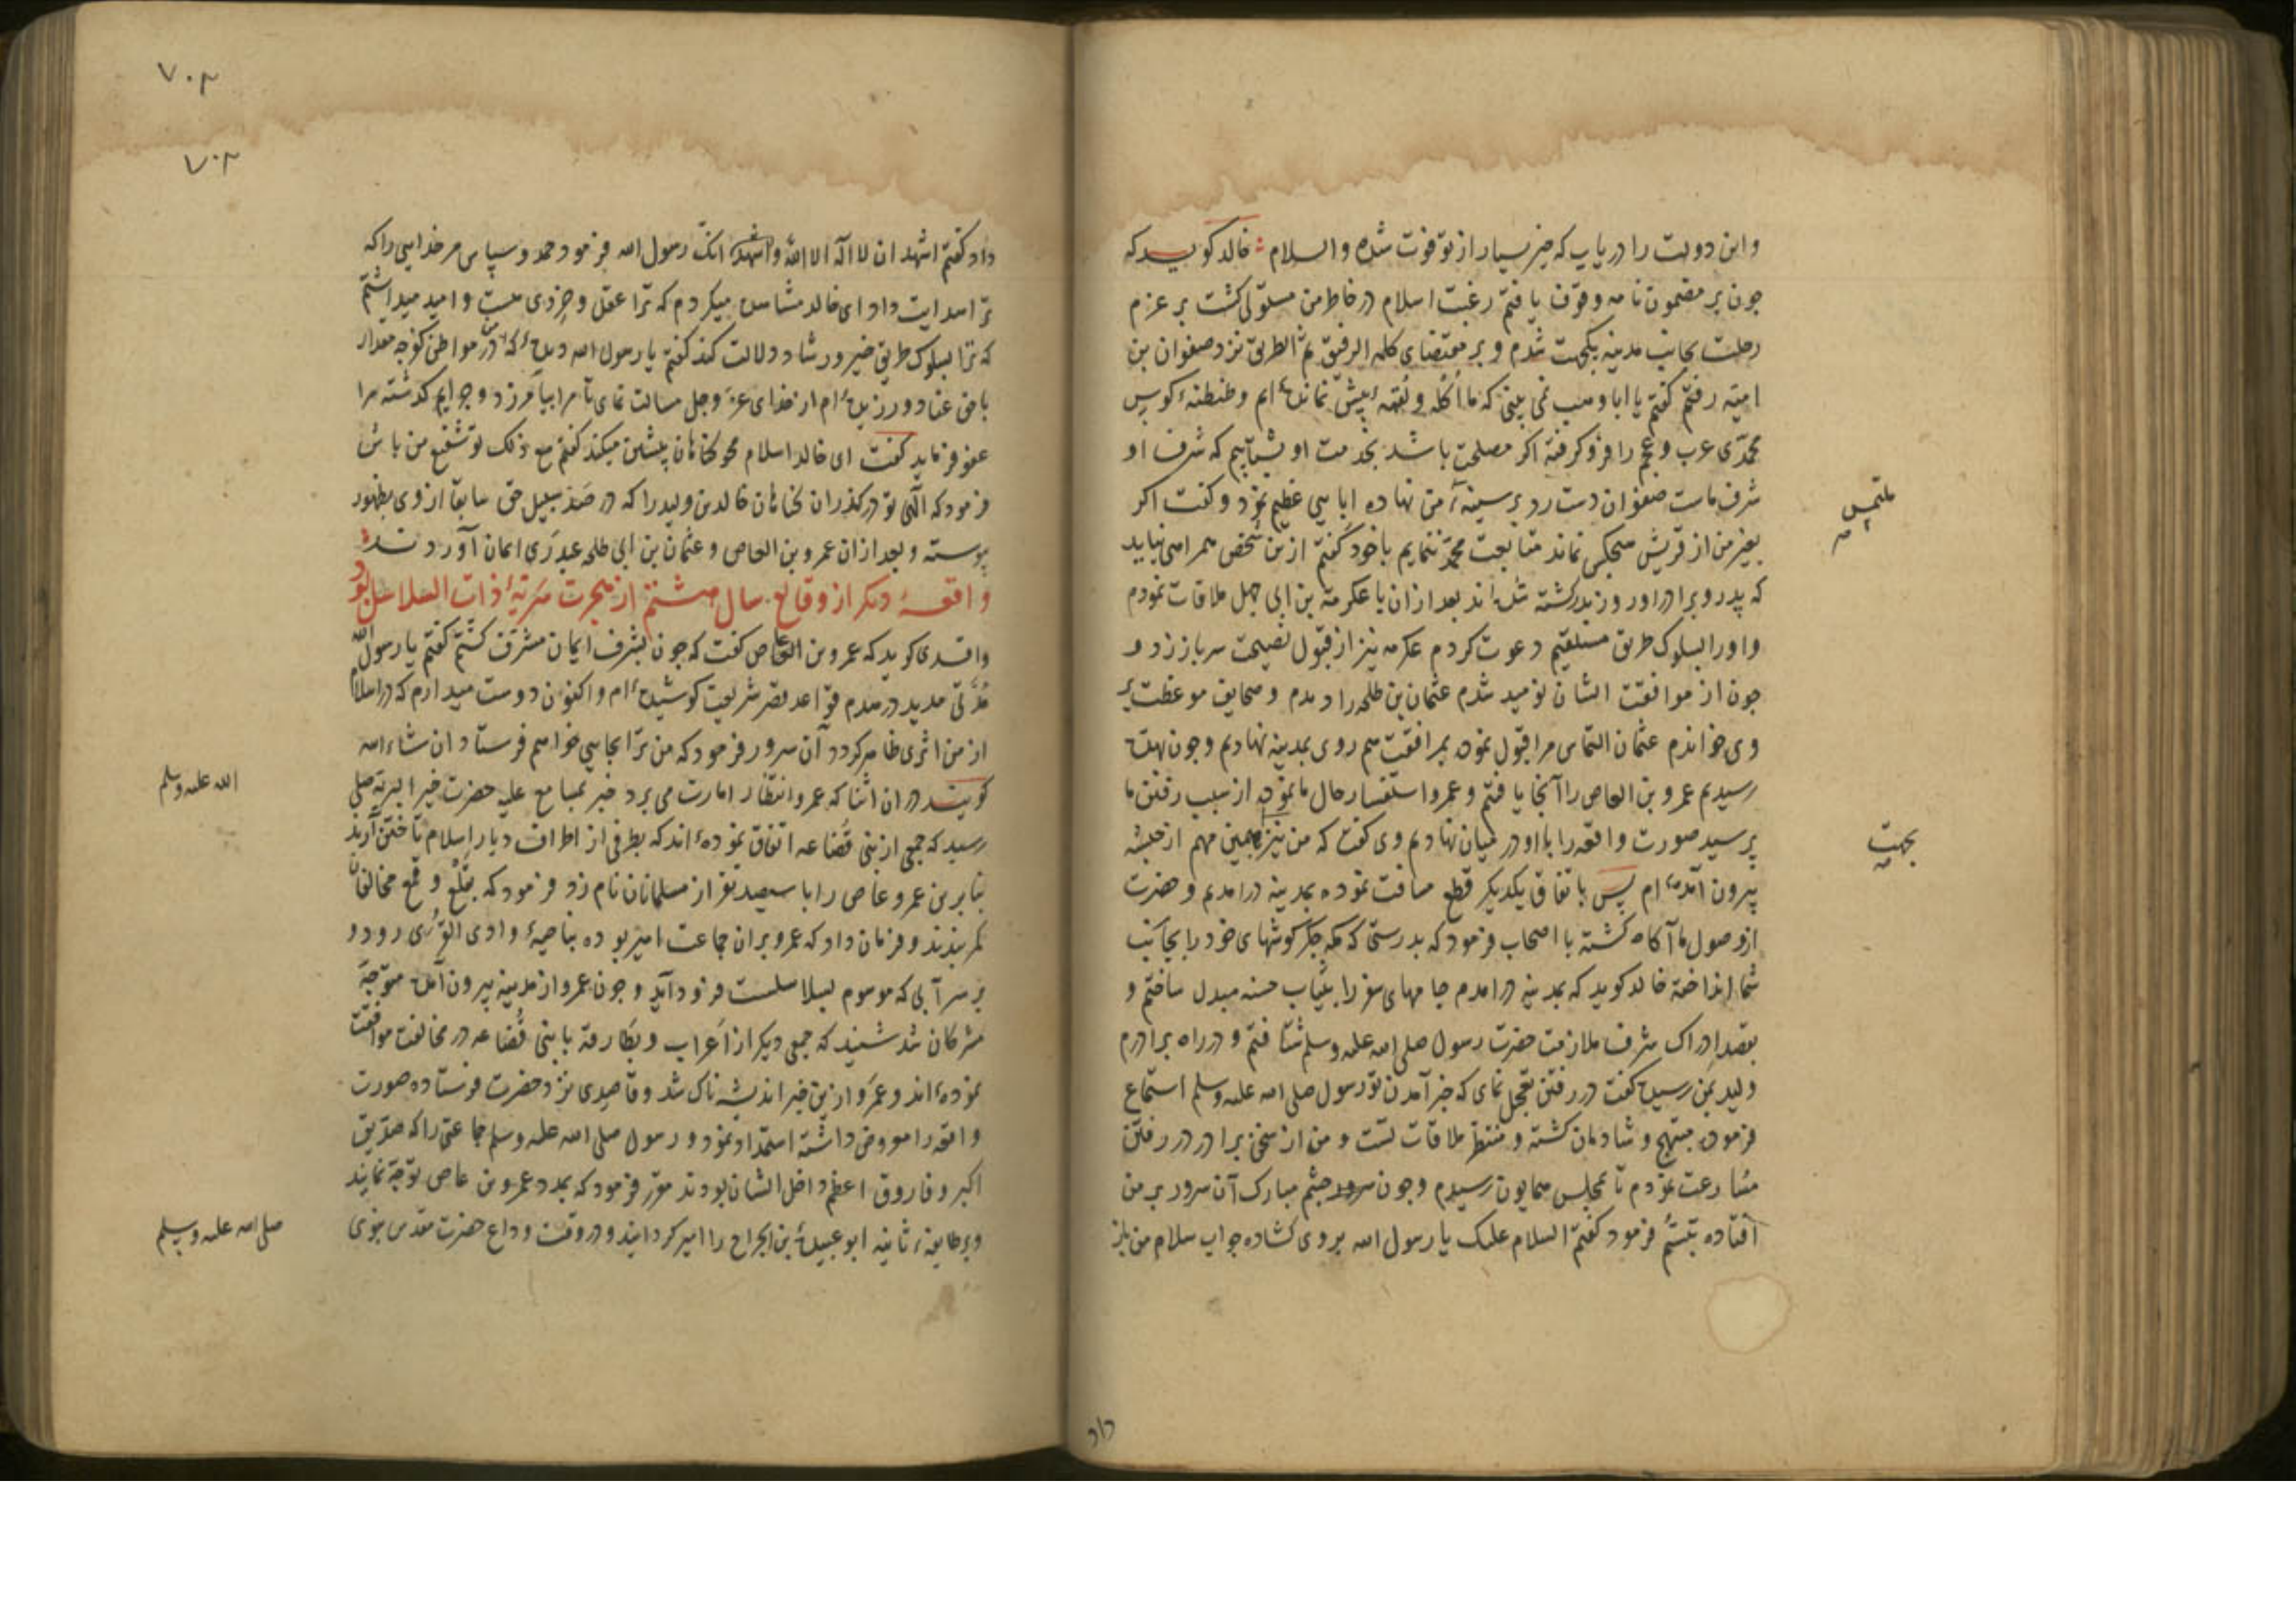 واین دولت را دریاب که خیر بسیار از تو فوت شده والسلام خالد کوید که
جون بر مضمون نامه وقوف یافتم رغبت اسلام در خاطر من مستولی کشت بر عزم
رحلت بجانب مدینه یکجهت شدم و بر مقتضای کلمه الرفیق ثم الطریق نزد صفوان بن
امیه رفتم کفتم یا ابا وهب نمی بینی که ما اکله و لقمه بیش نمانده ایم و طنطنه کوس
محمدی عرب و عجم را فرو کرفته اکر مصلحت باشد بخدمت او بشتابیم که شرف او
شرف ماست صفوان دست رد بر سینه من نهاده ابایی عظیم نمود و کفت اکر
بغیر من از قریش هیچکس نماند متابعت محمد ننمایم باخود کفتم ازین شخص همراهی نیاید
که پدر و برادر او روز بدر کشته شده اند بعد ازان با عکرمة بن ابی جهل ملاقات نمودم
و او را بسلوک طریق مستقیم دعوت کردم عکرمه نیز از قبول نصیحت سر باز زد و
جون از موافقت ایشان نومید شدم عثمان بن طلحه را دیدم و صحایف موعظت بر
وی خواندم عثمان التماس مرا قبول نموده بمرافقت هم روی بمدینه نهادیم و جون بهده
رسیدیم عمرو بن العاص را آنجا یافتم و عمرو استفسار حال ما نموده از سبب رفتن ما
پرسید صورت واقعه را با او در میان نهادیم وی کفت که من نیز بهمین مهم از حبشه
بیرون آمده ام پس باتفاق یکدیکر قطع مسافت نموده بمدینه درآمدیم و حضرت
از وصول ما آکاه کشته با اصحاب فرمود که بدرستی که مکه جکر کوشهای خود را بجانب
شما انداخته خالد کوید که بمدینه درآمدم جامهای سفر را بثیاب حسنه مبدل ساختم و
بقصد ادراک شرف ملازمت حضرت رسول صلی الله علیه وسلم شتافتم و در راه برادرم
ولید بمن رسیده کفت در رفتن تعجیل نمای که خبر آمدن تو رسول صلی الله علیه وسلم استماع
فرموده مبتهج و شادمان کشته و منتظر ملاقات تست و من از سخن برادر در رفتن
مسارعت نمودم تا بمجلس همایون رسیدم و جون سرور جشم مبارک آن سرور بر من
افتاده تبسم فرمود کفتم السلام علیک یا رسول الله بروی کشاده جواب سلام من باز
ملتمس
بجهت
داد
۷۰۲
۷۰۲
داد کفتم اشهد ان لا اله الا الله و اشهد انک رسول الله فرمود حمد و سپاس مر خدایی را که
ترا هدایت داد ای خالد مشاهده میکردم که ترا عقل و خردی هست و امید میداشتم
که ترا بسلوک طریق خیر و رشاد دلالت کند کفتم یا رسول الله دیده که در مواطن کوجه مقدار
با حق عناد ورزیده ام از خدای عز وجل مسالت نمای تا مرا بیامرزد و جرایم کذشته مرا
عفو فرماید کفت ای خالد اسلام محو کناهان پیشین میکند کفتم مع ذلک تو شفیع من باش
فرمود که الهی تو درکذران کناهان خالد بن ولید را که در صد سبیل حق سابقا از وی بظهور
پیوسته و بعد ازان عمرو بن العاص و عثمان بن ابی طلحه عبدری ایمان آوردند
واقعه دیکر از وقایع سال هشتم از هجرت سریه ذات السلاسل بود
واقدی کوید که عمرو بن العاص کفت که جون بشرف ایمان مشرف کشتم کفتم یا رسول الله
مدتی مدید در هدم قواعد قصر شریعت کوشیده ام و اکنون دوست میدارم که در اسلام
از من اثری ظاهر کردد آن سرور فرمود که من ترا بجایی خواهم فرستاد ان شاء الله
کویند در ان اثنا که عمرو انتظار امارت می برد خبر بمسامع علیه حضرت خیر البریه صلی
رسید که جمعی از بنی قضاعه اتفاق نموده اند که بطرفی از اطراف دیار اسلام تاختن آرند
بنابرین عمرو عاص را با سیصد نفر از مسلمانان نام زد فرمود که بقلع و قمع مخالفان
کمر بندند و فرمان داد که عمرو بران جماعت امیر بوده بناحیه وادی القری رود و
بر سر آبی که موسوم بسلاسلست فرود آید و جون عمرو از مدینه بیرون آمده متوجه
مشرکان شد شنید که جمعی دیکر از اعراب و بطارقه با بنی قضاعه در مخالفت موافقت
نموده اند و عمرو ازین خبر اندیشه ناک شد و قاصدی نزد حضرت فرستاده صورت
واقعه را معروض داشته استمداد نمود و رسول صلی الله علیه وسلم جماعتی را که صدیق
اکبر و فاروق اعظم داخل ایشان بودند مقرر فرمود که بمدد عمرو بن عاص توجه نمایند
و بر طایفه ثانیه ابو عبیده بن الجراح را امیر کردانید و در وقت وداع حضرت مقدس نبوی
الله علیه وسلم
صلی الله علیه وسلم